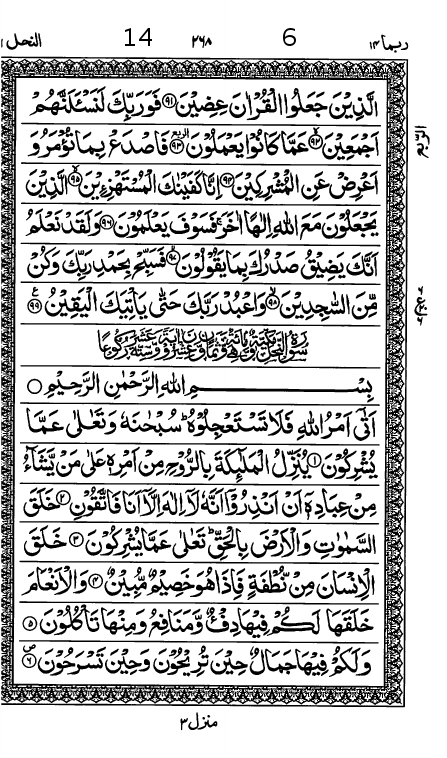 النحل ١٦ 14 ٢٦٨ 6 ربما ١٤
الَّذِيْنَ جَعَلُوا الْقُرْاٰنَ عِضِيْنَ ﴿۹۱﴾ فَوَرَبِّكَ لَنَسْـَٔلَنَّهُمْ
اَجْمَعِيْنَ ﴿۹۲﴾ عَمَّا كَانُوْا يَعْمَلُوْنَ ﴿۹۳﴾ فَاصْدَعْ بِمَا تُؤْمَرُ وَ
اَعْرِضْ عَنِ الْمُشْرِكِيْنَ ﴿۹۴﴾ اِنَّا كَفَيْنٰكَ الْمُسْتَهْزِءِيْنَ ﴿۹۵﴾ الَّذِيْنَ
يَجْعَلُوْنَ مَعَ اللّٰهِ اِلٰهًا اٰخَرَ ۚ فَسَوْفَ يَعْلَمُوْنَ ﴿۹۶﴾ وَلَقَدْ نَعْلَمُ
اَنَّكَ يَضِيْقُ صَدْرُكَ بِمَا يَقُوْلُوْنَ ﴿۹۷﴾ فَسَبِّحْ بِحَمْدِ رَبِّكَ وَكُنْ
مِّنَ السّٰجِدِيْنَ ﴿۹۸﴾ وَاعْبُدْ رَبَّكَ حَتّٰى يَاْتِيَكَ الْيَقِيْنُ ﴿۹۹﴾
سُوْرَةُ النَّحْلِ مَكِّيَّةٌ
بِسْمِ اللّٰهِ الرَّحْمٰنِ الرَّحِيْمِ
اَتٰۤى اَمْرُ اللّٰهِ فَلَا تَسْتَعْجِلُوْهُ ؕ سُبْحٰنَهٗ وَتَعٰلٰى عَمَّا
يُشْرِكُوْنَ ﴿۱﴾ يُنَزِّلُ الْمَلٰٓئِكَةَ بِالرُّوْحِ مِنْ اَمْرِهٖ عَلٰى مَنْ يَّشَآءُ
مِنْ عِبَادِهٖۤ اَنْ اَنْذِرُوْۤا اَنَّهٗ لَاۤ اِلٰهَ اِلَّاۤ اَنَا فَاتَّقُوْنِ ﴿۲﴾ خَلَقَ
السَّمٰوٰتِ وَالْاَرْضَ بِالْحَقِّ ؕ تَعٰلٰى عَمَّا يُشْرِكُوْنَ ﴿۳﴾ خَلَقَ
الْاِنْسَانَ مِنْ نُّطْفَةٍ فَاِذَا هُوَ خَصِيْمٌ مُّبِيْنٌ ﴿۴﴾ وَالْاَنْعَامَ
خَلَقَهَا ۚ لَكُمْ فِيْهَا دِفْءٌ وَّمَنَافِعُ وَمِنْهَا تَاْكُلُوْنَ ﴿۵﴾
وَلَكُمْ فِيْهَا جَمَالٌ حِيْنَ تُرِيْحُوْنَ وَحِيْنَ تَسْرَحُوْنَ ﴿۶﴾
منزل ۳